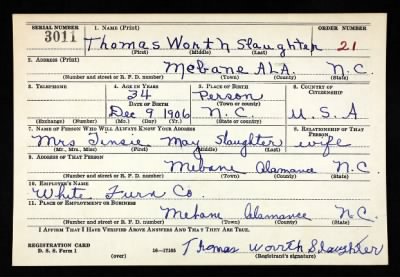 SERIAL NUMBER 1. NAME (Print) ORDER NUMBER
3011 Thomas Worth Slaughter 21
(First) (Middle) (Last)
2. ADDRESS (Print)
Mebane ALA. N.C.
(Number and street or R. F. D. number) (Town) (County) (State)
3. TELEPHONE 4. AGE IN YEARS 5. PLACE OF BIRTH 6. COUNTRY OF CITIZENSHIP
34 Person
DATE OF BIRTH (Town or county)
Dec 9 1906 N.C. U.S.A
(Exchange) (Number) (Mo.) (Day) (Yr.) (State or country)
7. NAME OF PERSON WHO WILL ALWAYS KNOW YOUR ADDRESS 8. RELATIONSHIP OF THAT PERSON
Mrs Tinsie May Slaughter wife
(Mr., Mrs., Miss) (First) (Middle) (Last)
9. ADDRESS OF THAT PERSON
Mebane Alamance N.C.
(Number and street or R. F. D. number) (Town) (County) (State)
10. EMPLOYER'S NAME
White Furn Co
11. PLACE OF EMPLOYMENT OR BUSINESS
Mebane Alamance N.C.
(Number and street or R. F. D. number) (Town) (County) (State)
I AFFIRM THAT I HAVE VERIFIED ABOVE ANSWERS AND THAT THEY ARE TRUE.
REGISTRATION CARD
D. S. S. Form 1 (over) 16-17105 Thomas Worth Slaughter
(Registrant's signature)